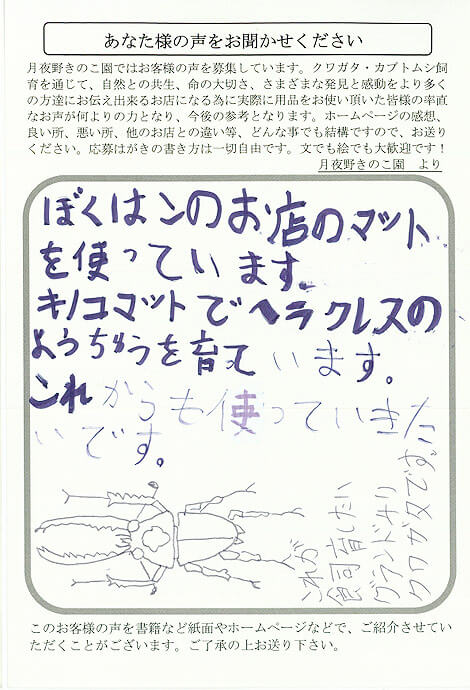 あなた様の声をお聞かせください
月夜野きのこ園ではお客様の声を募集しています。クワガタ・カブトムシ飼
育を通じて、自然との共生、命の大切さ、さまざまな発見と感動をより多く
の方達にお伝え出来るお店になる為に実際に用品をお使い頂いた皆様の率直
なお声が何よりの力となり、今後の参考となります。ホームページの感想、
良い所、悪い所、他のお店との違い等、どんな事でも結構ですので、お送り
ください。応募はがきの書き方は一切自由です。文でも絵でも大歓迎です！
月夜野きのこ園　より
ぼくはこのお店のマット
を使っています。
キノコマットでヘラクレスの
ようちゅうを育ています。
これからも使っていきた
いです。
これが
飼育したい
グランドナリ
クワガタです。
このお客様の声を書籍など紙面やホームページなどで、ご紹介させてい
ただくことがございます。ご了承の上お送り下さい。